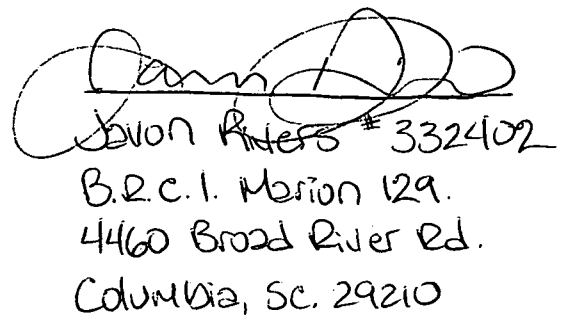 Javon Rivers # 332402
B.R.C.I. Marion 129.
4460 Broad River Rd.
Columbia, SC. 29210